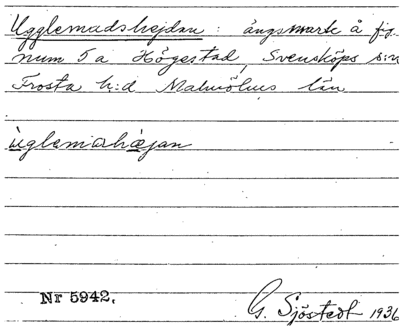 Ugglemadshejdan : ängsmark å fig.
num 5a Högestad, Svensköps s:n
Frosta h:d Malmöhus län
ùglemαhæjan
Nr 5942.
G. Sjöstedt 1936